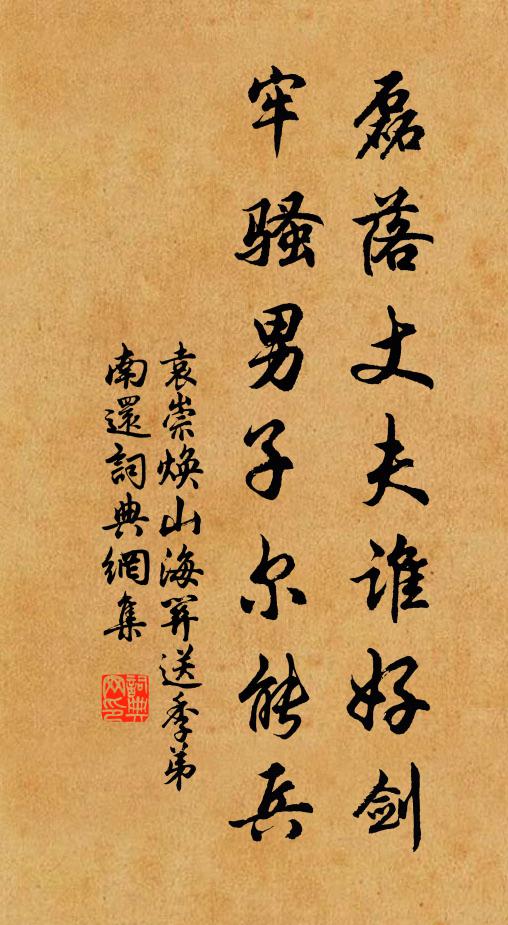 磊落丈夫谁好剑
牢骚男子尔能兵
袁崇焕山海関送季弟
南還詞典網集
詞典网印